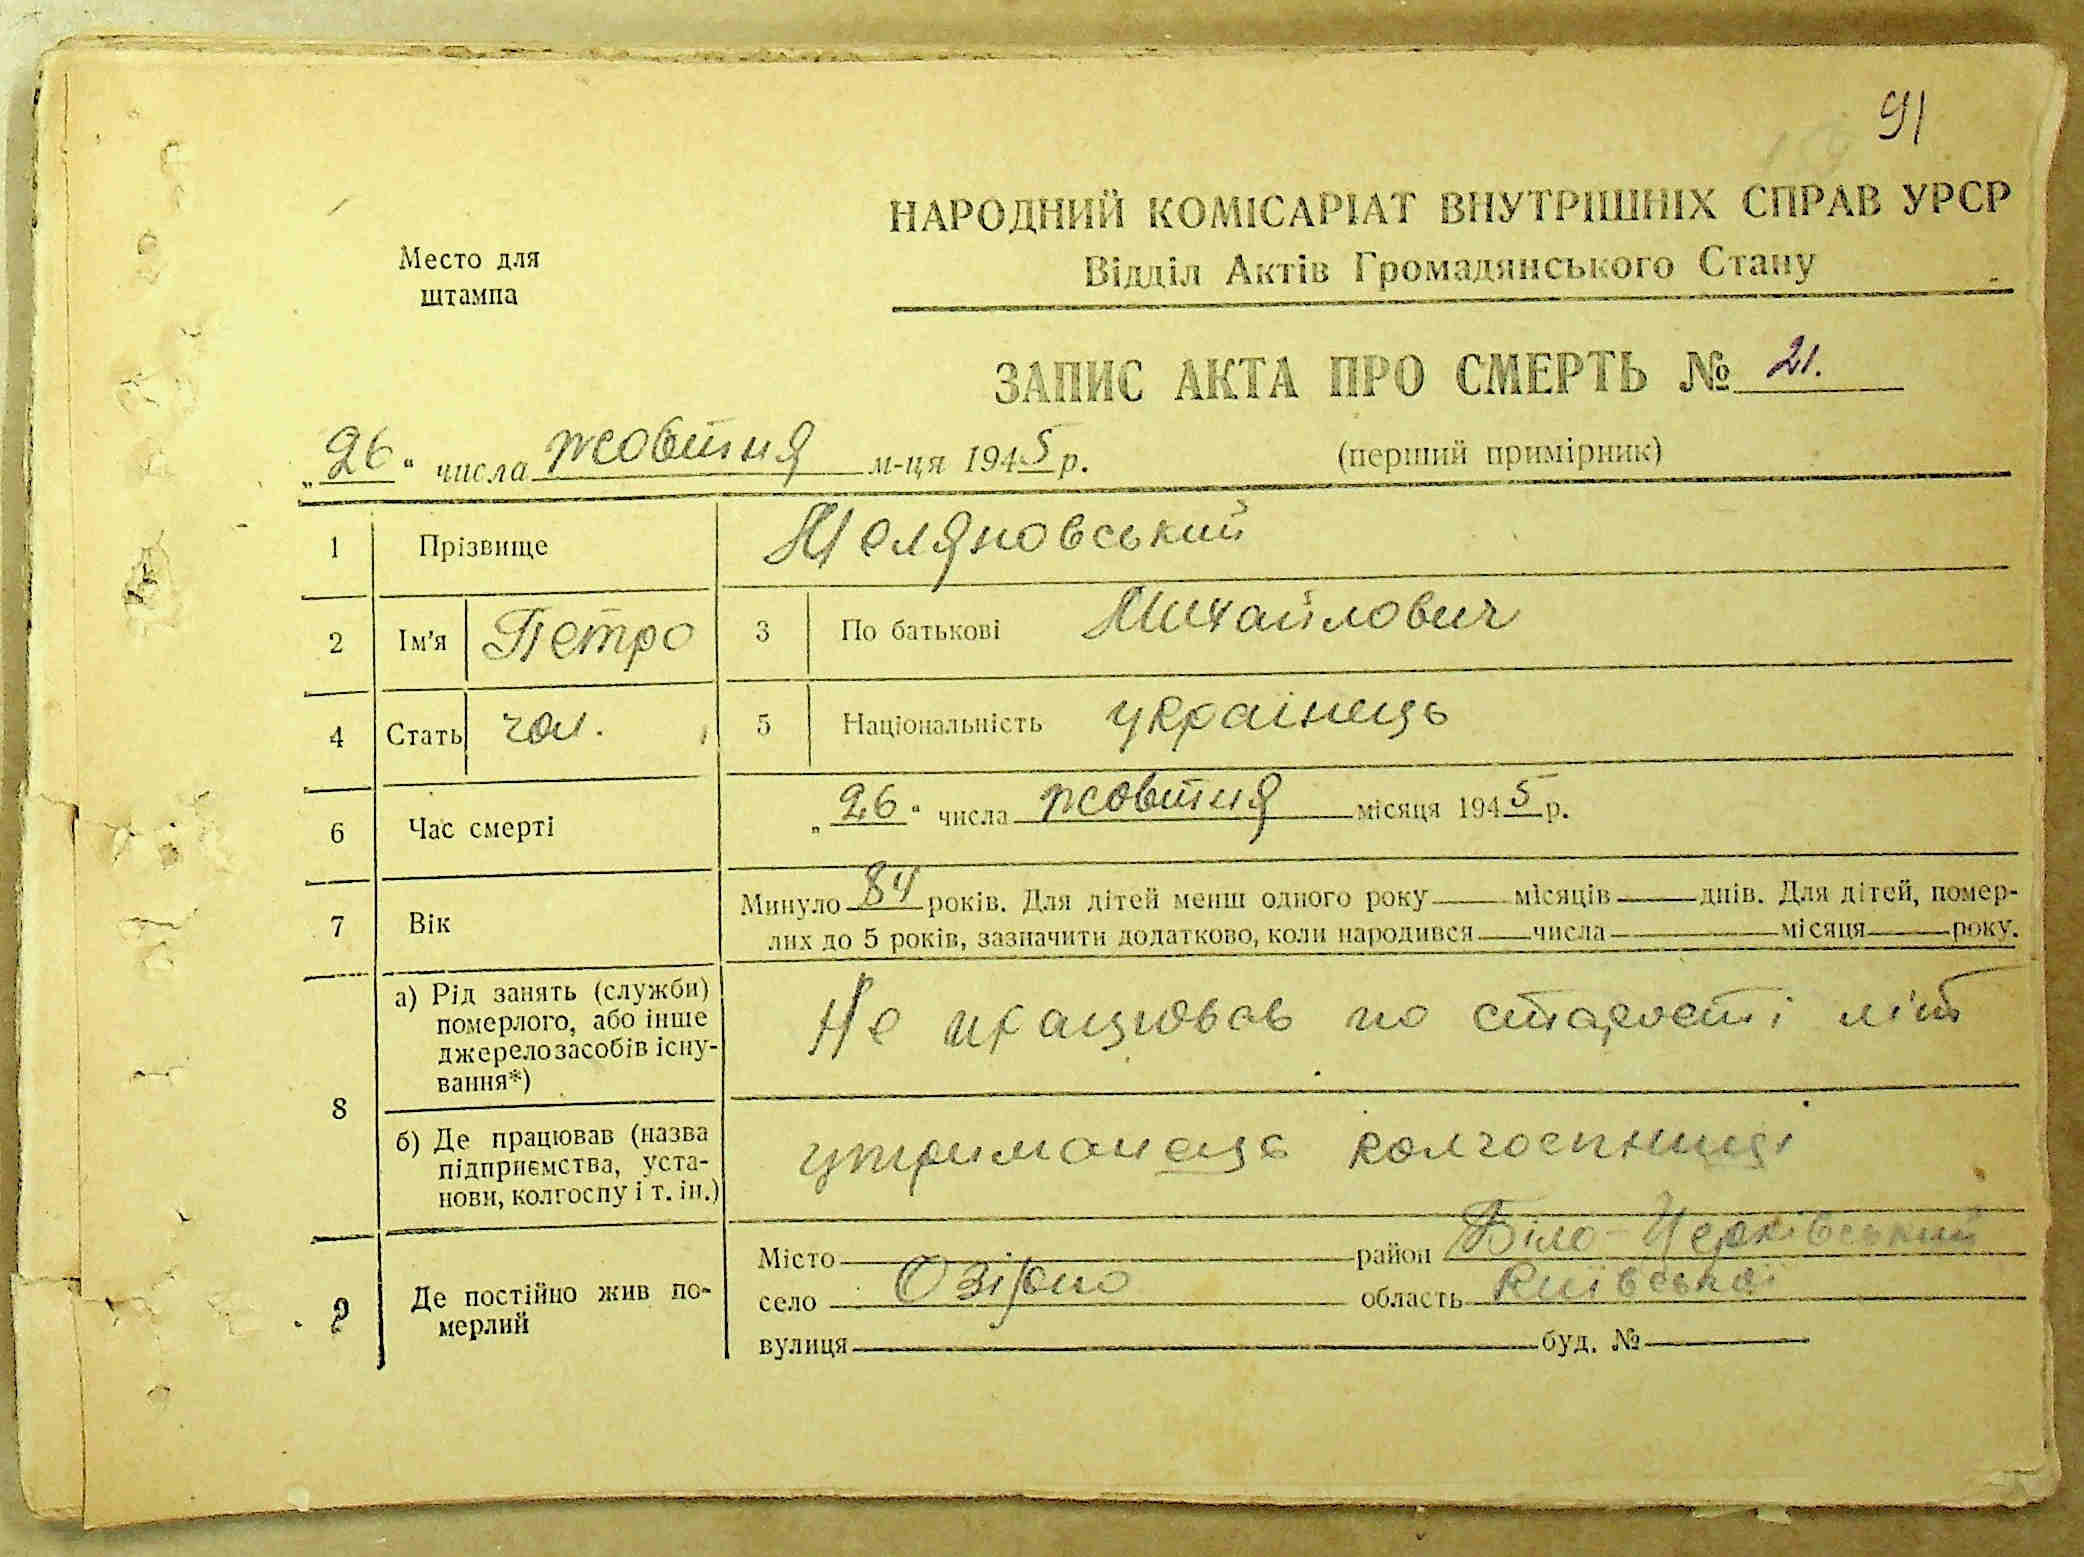 91
НАРОДНИЙ КОМІСАРІАТ ВНУТРІШНІХ СПРАВ УРСР
Место для штампа
Відділ Актів Громадянського Стану
ЗАПИС АКТА ПРО СМЕРТЬ № 21.
„26“ числа жовтня м-ця 1945 р.
(перший примірник)
1 Прізвище Меляновський
2 Ім'я Петро 3 По батькові Михайлович
4 Стать чол. 5 Національність українець
6 Час смерті „26“ числа жовтня місяця 1945 р.
7 Вік Минуло 84 років. Для дітей менш одного року місяців днів. Для дітей, помер-
лих до 5 років, зазначити додатково, коли народився числа місяця року.
8 а) Рід занять (служби)
померлого, або інше
джерело засобів існу-
вання*)
Не працював по старості літ
б) Де працював (назва
підприємства, уста-
нови, колгоспу і т. ін.)
утриманець колгоспниці
9 Де постійно жив по-
мерлий
Місто район Біло-Церківський
село Озірно область Київська
вулиця буд. №